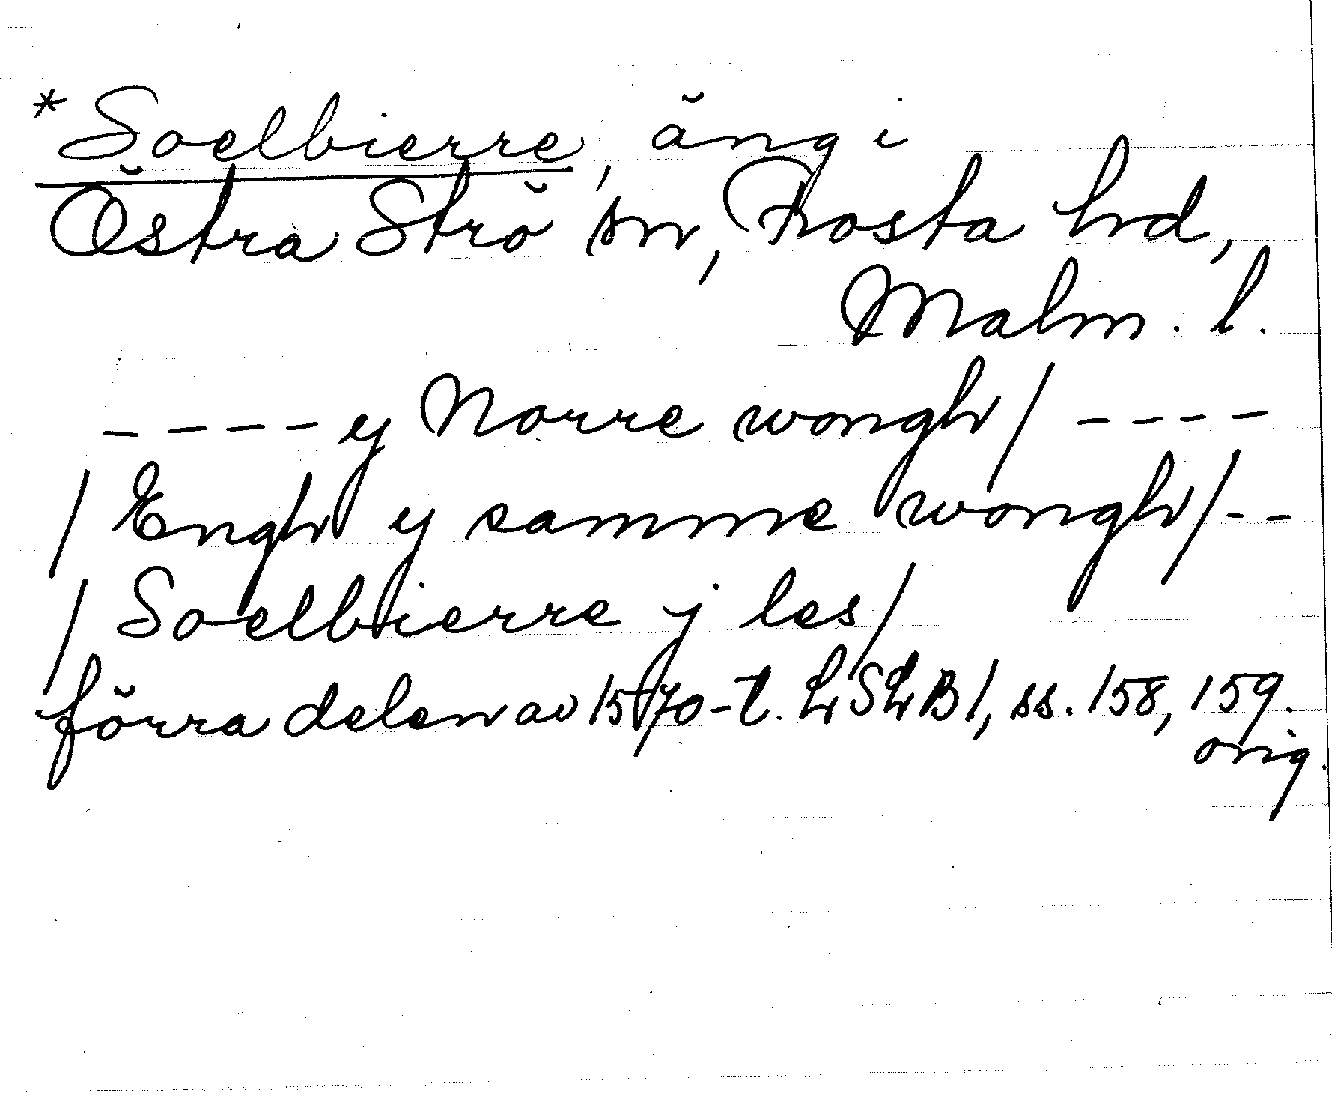 *Soelbierre, äng i
Östra Strö sn, Frosta hd,
Malm. l.
---- y Norre wongh/ ----
/Engh y samme wongh/--
/Soelbierre j les/
förra delen av 1570-t. LSLB1, ss. 158, 159.
orig.